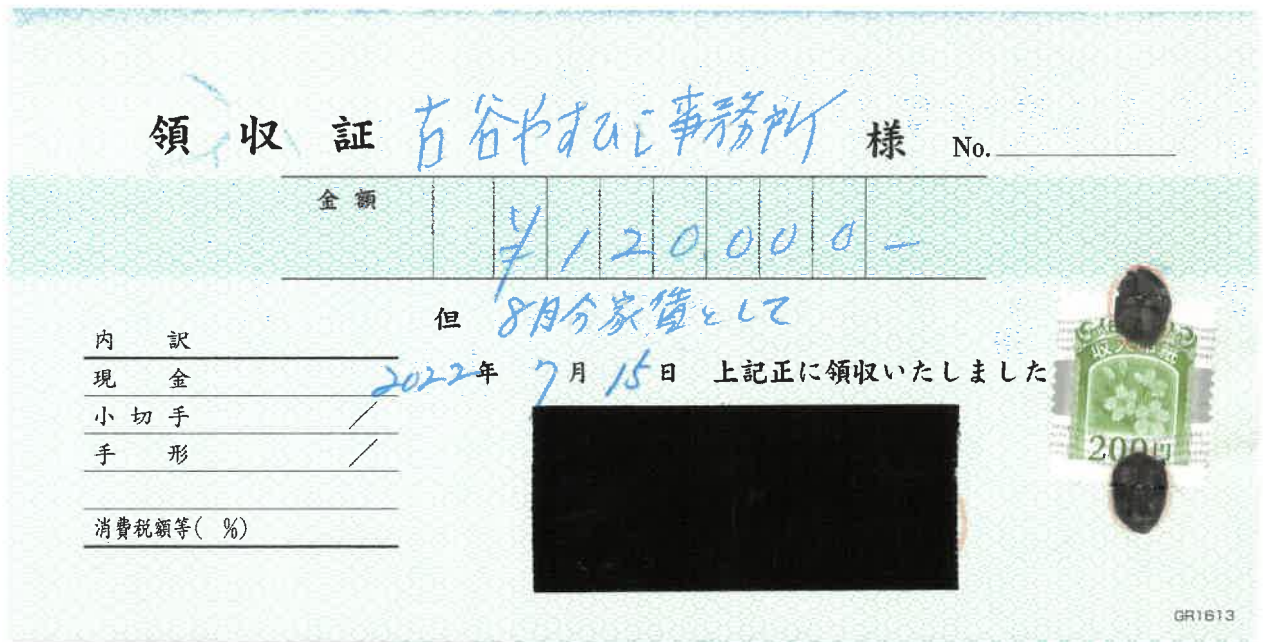 領収証 古谷やすひこ事務所 様 No.
金額 ¥120,000-
但 8月分家賃として
内訳
現金
2022年 7月 15日 上記正に領収いたしました
小切手 /
手形 /
消費税額等( %)
200円
GR1613